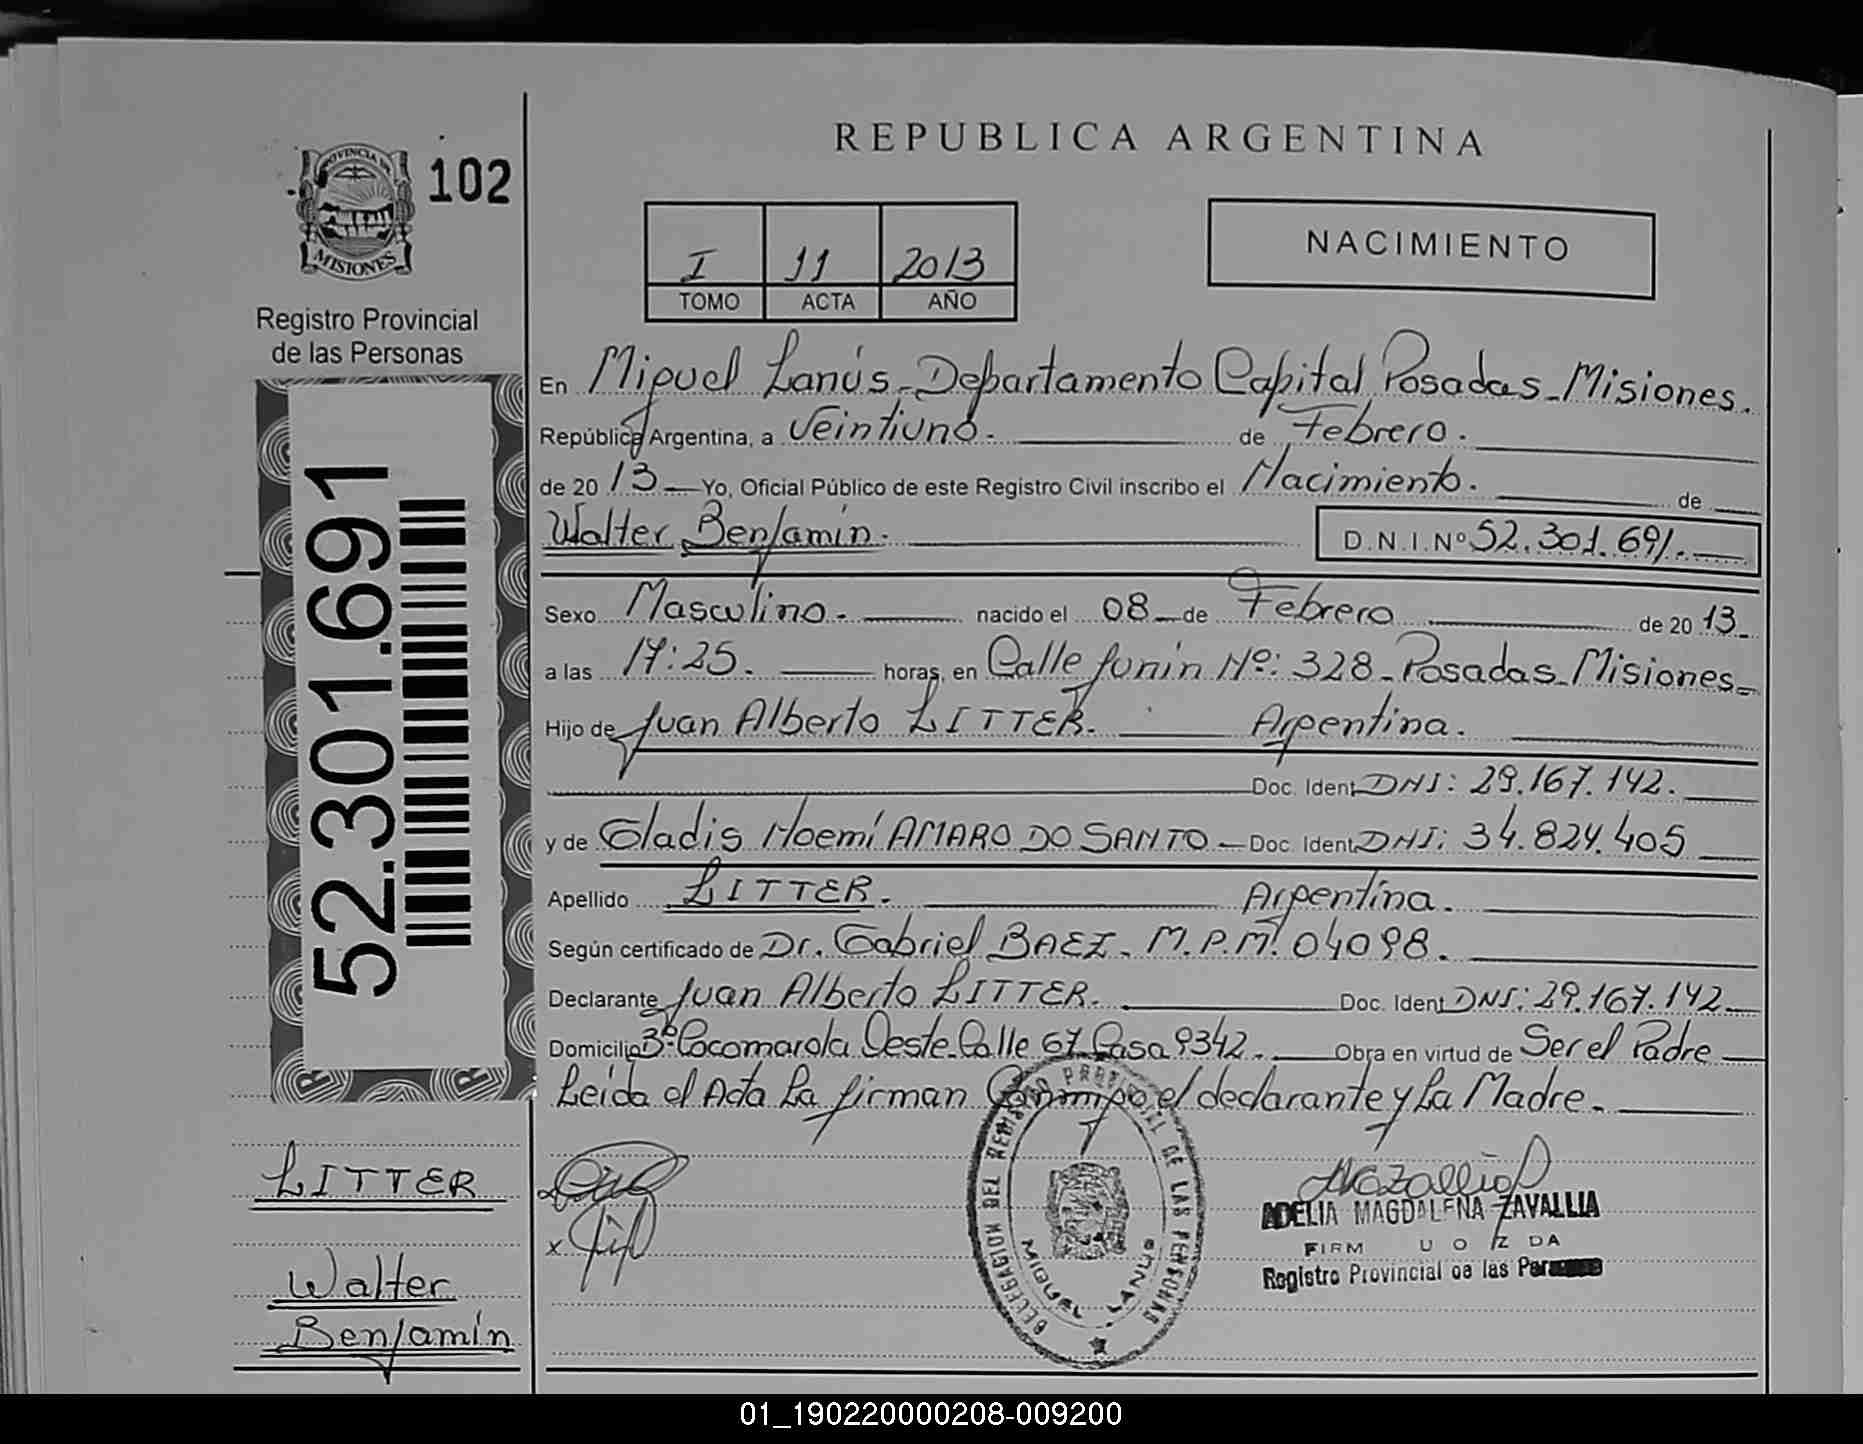 REPUBLICA ARGENTINA
PROVINCIA DE
MISIONES
102
Registro Provincial
de las Personas
I 11 2013
TOMO ACTA AÑO
NACIMIENTO
En Miguel Lanús - Departamento Capital Posadas - Misiones.
República Argentina, a Veintiuno. de Febrero.
de 2013 Yo, Oficial Público de este Registro Civil inscribo el Nacimiento. de
Walter Benjamín. D.N.I.Nº 52.301.691.
Sexo Masculino. nacido el 08 de Febrero de 2013
a las 17:25. horas, en Calle Junín Nº: 328 - Posadas - Misiones
Hijo de Juan Alberto LITTER. Argentina.
Doc. Ident DNI: 29.167.142.
y de Gladis Noemí AMARO DO SANTO - Doc. Ident DNI: 34.824.405
Apellido LITTER. Argentina.
Según certificado de Dr. Gabriel BAEZ. M.P.M. 04098.
Declarante Juan Alberto LITTER. Doc. Ident DNI: 29.167.142
Domicilio Bº Cocomarola Oeste - Calle 67 Casa 9342. Obra en virtud de Ser el Padre
Leída el Acta La firman Conmigo el declarante y La Madre.
52.301.691
LITTER
Walter
Benjamín
X
DELEGACION DEL REGISTRO PROVINCIAL DE LAS PERSONAS
MIGUEL LANUS
ADELIA MAGDALENA ZAVALLIA
Registro Provincial de las Personas
01_190220000208-009200